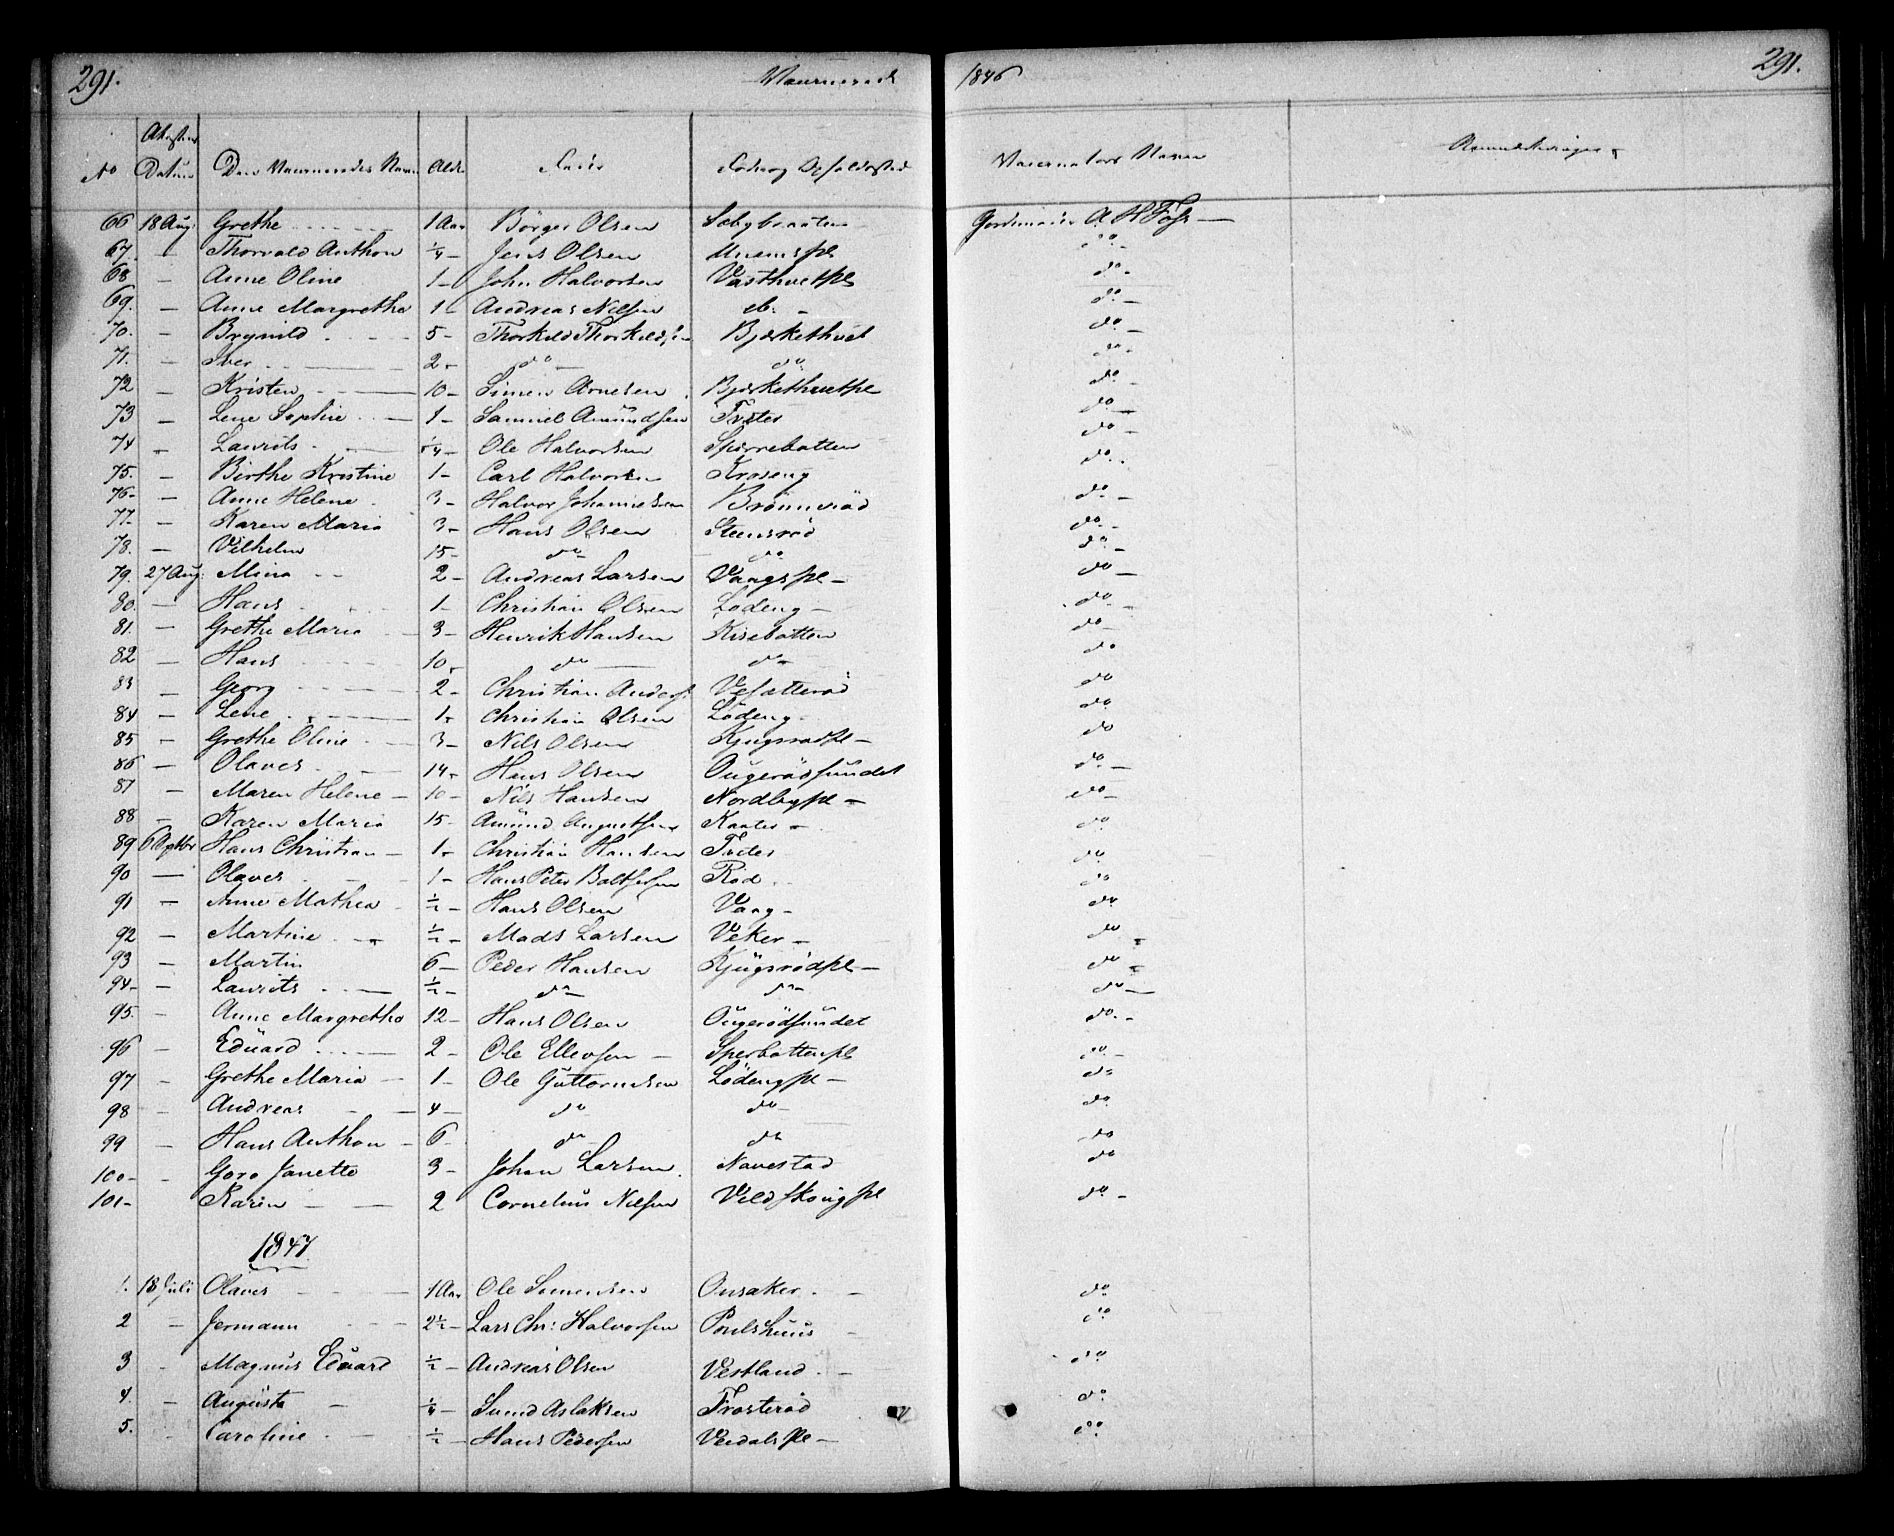 291. Vaccinerede 1846 291.
No Attestens Datum Den Vaccineredes Navn Alder Fader Føde og Opholdssted Vaccinators Navn Anmærkninger
66 18 Aug: Grethe 1 Aar Börger Olsen Gordemoder A H Föss
67. — Thorvald Anthon ¼ Jens Olsen Unumspl do
68 — Anne Oline 1 — John Halvorsen Vasthvetpl do
69. — Anne Margrethe 1 Andreas Nilsen do. do
70. — Brynild 5 — Thorkild Thorkildsen Bjerkethvet do
71. — Iver 2 — do do do
72 — Kristen 10 — Simen Arnesen Bjerkethvetpl do
73 — Lene Sophie 1 — Samuel Amundsen Freter do
74 — Laurits ¼ — Ole Halvorsen Sperrebotten do
75. — Birthe Kristine 1 — Carl Halvorsen Kroseng do
76 — Anne Helene 3 — Halvor Johannesen Brönneröd do
77 — Karen Maria 3 — Hans Olsen Steensröd do
78. — Vilhelm 15 — do do do
79. 27 Aug: Mina 2 — Andreas Larsen Vaagspl — do
80. — Hans 1 — Christian Olsen Lödeng — do
81. — Grethe Maria 3 — Henrik Hansen Kisebotten do
82 — Hans 10 — do do do
83 — Georg 2 — Christian Anders: Vesætteröd do
84 — Lene 1 — Christian Olsen Lödeng do
85 — Grethe Oline 3 — Nils Olsen Kjugsrödpl — do
86 — Olaves 14 — Hans Olsen Ougerödsundet do
87 — Maren Helene — 10 — Nils Hansen Nordbypl — do
88 — Karen Maria 15 — Amund Augustsen Kaater — do
89 6 Septbr Hans Christian — 1 — Christian Hansen Freter do
90 — Olaves 1 — Hans Peter Baltsersen Röd do
91 — Anne Mathea ½ — Hans Olsen Vaag — do
92 — Martine ½ — Mads Larsen Veker — do
93 — Martin 6 — Peder Hansen Kjügsrödpl — do
94 — Laurits ½ — do do do
95 — Anne Margrethe 12 — Hans Olsen Ougerödsundet do
96 — Edüard 2 — Ole Ellevsen — Sperbottenpl do
97 — Grethe Maria — 1 — Ole Guttormsen Lödengpl — do
98 — Andreas 4 — do do do
99 — Hans Anthon — 6 — do do do
100 — Goro Janette 3 — Johan Larsen Navestad do
101 — Karin 2 Cornelius Nilsen Veldskougpl do
1847.
1. 18 Juli Olaves 1 Aar Ole Simensen Onsaker do
2 — Jermann 2½ — Lars Chr: Halvorsen Poulshuus do
3 — Magnus Edüard ½ — Andreas Olsen Vestland do
4. — Augüsta ¼ — Svend Aslaksen Frosteröd do
5. Caroline ½ — Hans Pedersen Veidalspl — do